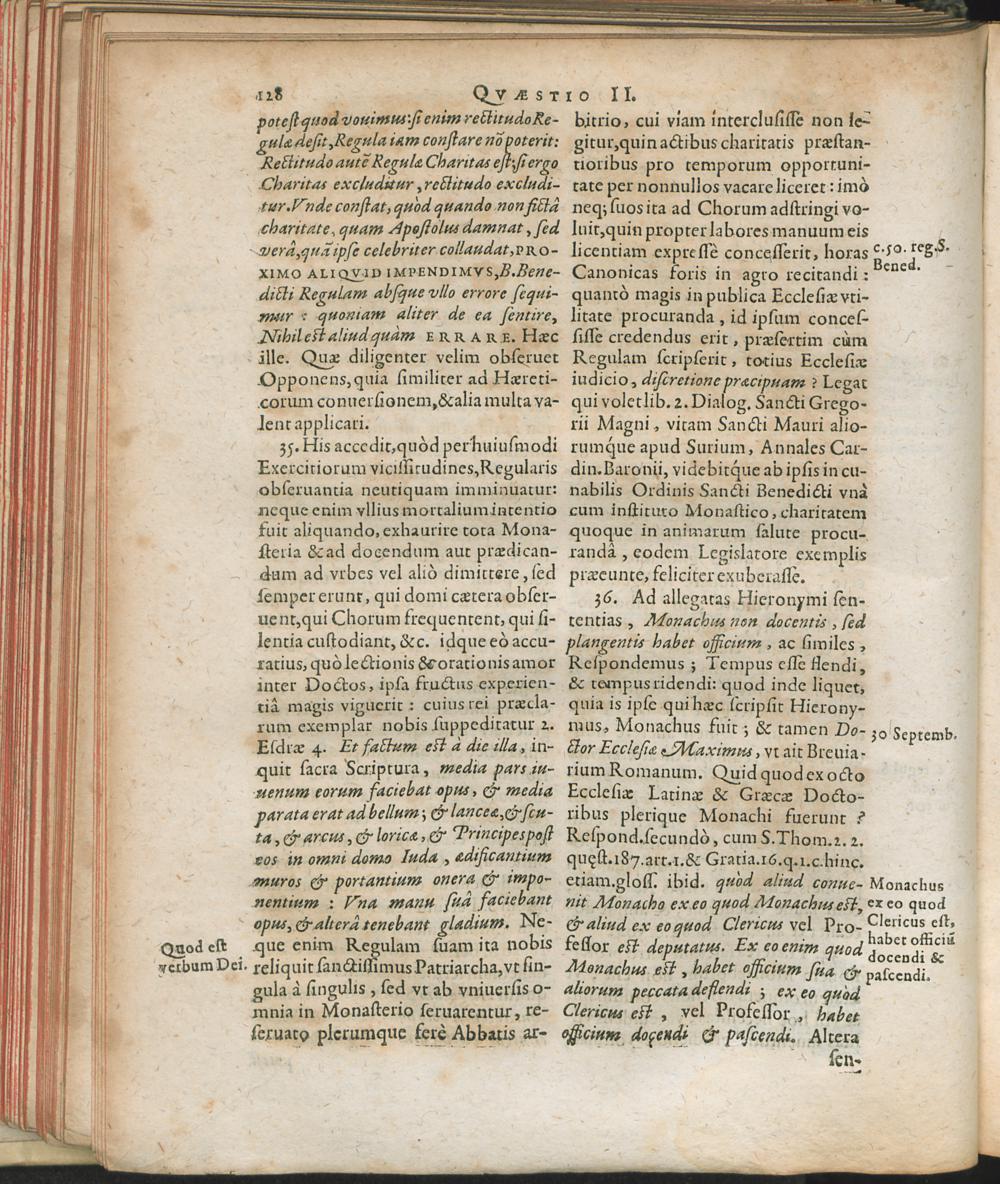 128
QVÆSTIO II.
potest quod vouimus: si enim rectitudo Re-
gulæ desit, Regula iam constare nō poterit:
Rectitudo autē Regulæ Charitas est; si ergo
Charitas excluditur, rectitudo excludi-
tur. Vnde constat, quòd quando non fictâ
charitate, quam Apostolus damnat, sed
verâ, quā ipse celebriter collaudat, PRO-
XIMO ALIQVID IMPENDIMVS, B. Bene-
dicti Regulam absque vllo errore sequi-
mur : quoniam aliter de ea sentire,
Nihil est aliud quàm ERRARE. Hæc
ille. Quæ diligenter velim obseruet
Opponens, quia similiter ad Hæreti-
corum conuersionem, & alia multa va-
lent applicari.
35. His accedit, quòd per huiusmodi
Exercitiorum vicissitudines, Regularis
obseruantia neutiquam imminuatur:
neque enim vllius mortalium intentio
fuit aliquando, exhaurire tota Mona-
steria & ad docendum aut prædican-
dum ad vrbes vel aliò dimittere, sed
semper erunt, qui domi cætera obser-
uent, qui Chorum frequentent, qui si-
lentia custodiant, &c. idque eò accu-
ratius, quò lectionis & orationis amor
inter Doctos, ipsa fructus experien-
tiâ magis viguerit : cuius rei præcla-
rum exemplar nobis suppeditatur 2.
Esdræ 4. Et factum est à die illa, in-
quit sacra Scriptura, media pars iu-
uenum eorum faciebat opus, & media
parata erat ad bellum; & lanceæ, & scu-
ta, & arcus, & loricæ, & Principes post
eos in omni domo Iuda, ædificantium
muros & portantium onera & impo-
nentium : Vna manu suâ faciebant
opus, & alterâ tenebant gladium. Ne-
que enim Regulam suam ita nobis
reliquit sanctissimus Patriarcha, vt sin-
gula à singulis, sed vt ab vniuersis o-
mnia in Monasterio seruarentur, re-
seruato plerumque ferè Abbatis ar-
Quod est
verbum Dei.
bitrio, cui viam interclusisse non le-
gitur, quin actibus charitatis præstan-
tioribus pro temporum opportuni-
tate per nonnullos vacare liceret : imò
neq; suos ita ad Chorum adstringi vo-
luit, quin propter labores manuum eis
licentiam expressè concesserit, horas
Canonicas foris in agro recitandi :
quantò magis in publica Ecclesiæ vti-
litate procuranda, id ipsum conces-
sisse credendus erit, præsertim cùm
Regulam scripserit, totius Ecclesiæ
iudicio, discretione præcipuam ? Legat
qui volet lib. 2. Dialog. Sancti Grego-
rii Magni, vitam Sancti Mauri alio-
rumq́ue apud Surium, Annales Car-
din. Baronij, videbitq́ue ab ipsis in cu-
nabilis Ordinis Sancti Benedicti vnà
cum instituto Monastico, charitatem
quoque in animarum salute procu-
randâ, eodem Legislatore exemplis
præeunte, feliciter exuberasse.
36. Ad allegatas Hieronymi sen-
tentias, Monachus non docentis, sed
plangentis habet officium, ac similes,
Respondemus; Tempus esse flendi,
& tempus ridendi: quod inde liquet,
quia is ipse qui hæc scripsit Hierony-
mus, Monachus fuit; & tamen Do-
ctor Ecclesiæ Maximus, vt ait Breuia-
rium Romanum. Quid quod ex octo
Ecclesiæ Latinæ & Græcæ Docto-
ribus plerique Monachi fuerunt ?
Respond. secundò, cum S. Thom. 2. 2.
quęst. 187. art. 1. & Gratia. 16. q. 1. c. hinc.
etiam. gloss. ibid. quòd aliud conue-
nit Monacho ex eo quod Monachus est,
& aliud ex eo quod Clericus vel Pro-
fessor est deputatus. Ex eo enim quod
Monachus est, habet officium sua &
aliorum peccata deflendi ; ex eo quòd
Clericus est, vel Professor, habet
officium docendi & pascendi. Altera
sen-
c. 50. reg. S.
Bened.
30 Septemb.
Monachus
ex eo quod
Clericus est,
habet officiū
docendi &
pascendi.